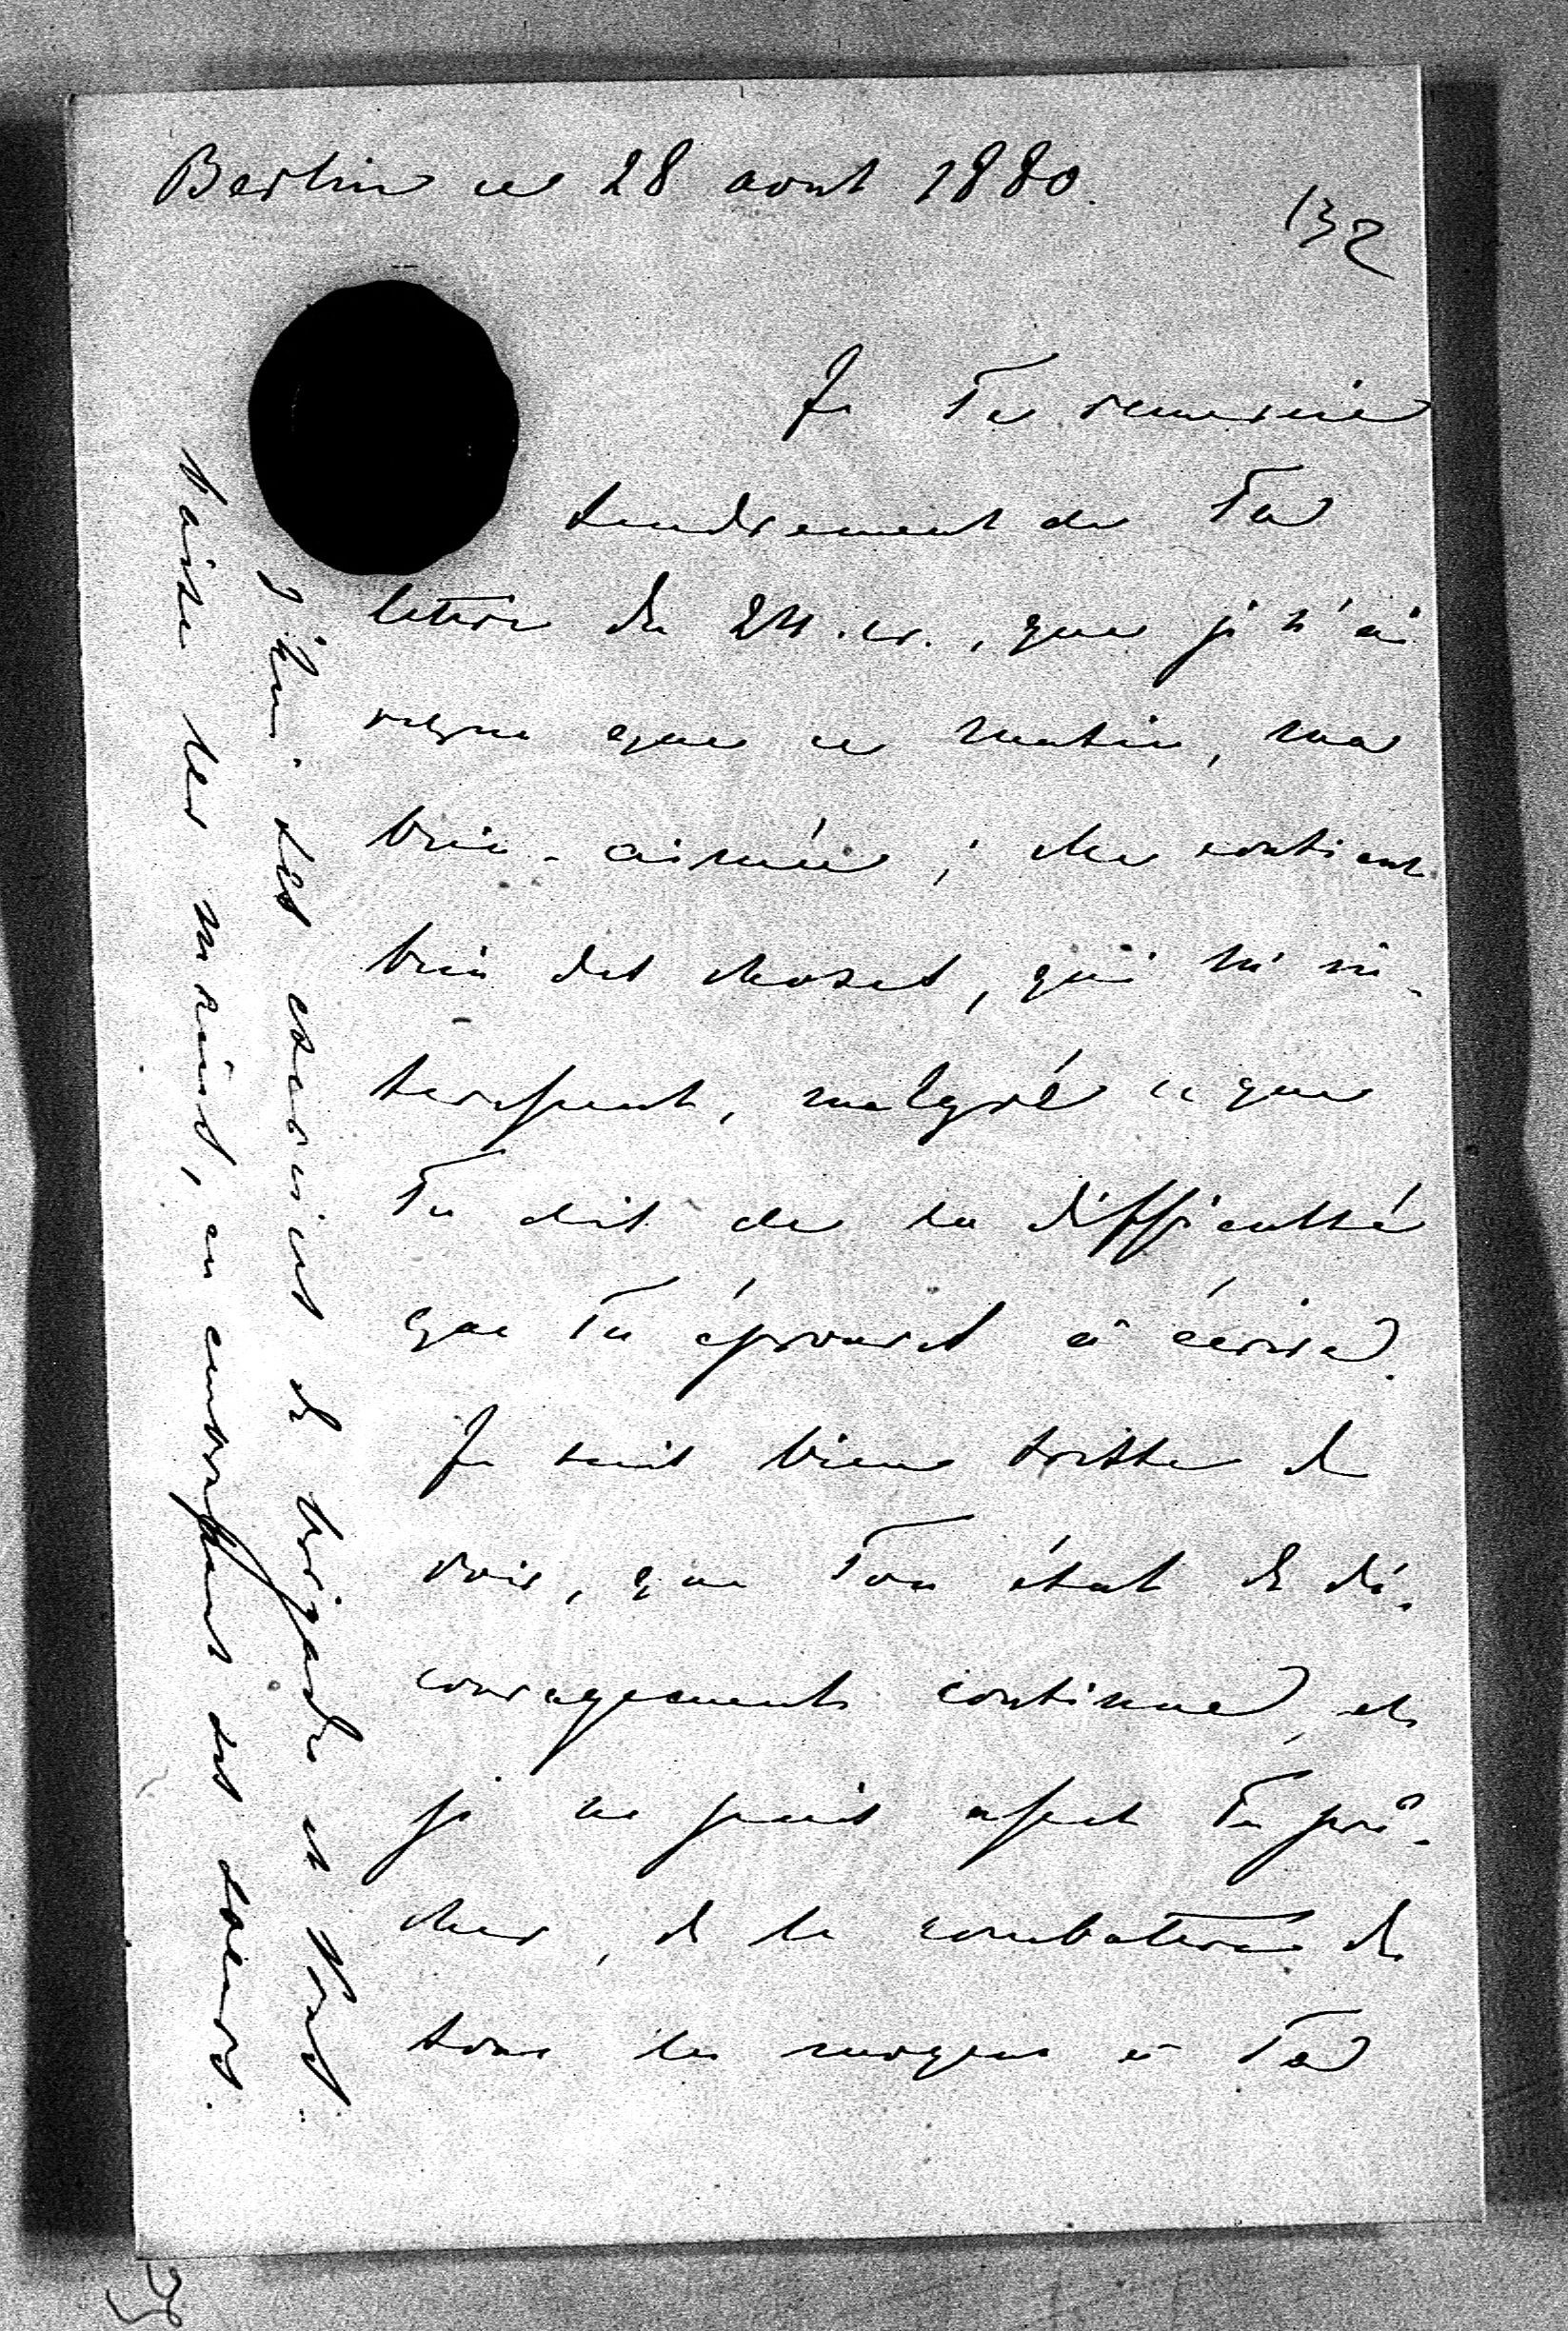 Berlin ce 28 aout 1880.
132
Je Te remercie
tendrement de Ta
lettre du 24. cr., que je n'ai
reçue que ce matin, ma
bien-aimée; elle contient
bien des choses, qui m'in-
teressent, malgré ce que
Tu dis de la difficulté
que Tu éprouves à écrire.
Je suis bien triste de
voir, que Ton état de dé-
couragement continue, et
je ne puis assez Te prê-
cher, de le combattre de
tous les moyens à Ta
j'hui. Les exercices de brigade
baise les mains, en embrassant des soeurs.